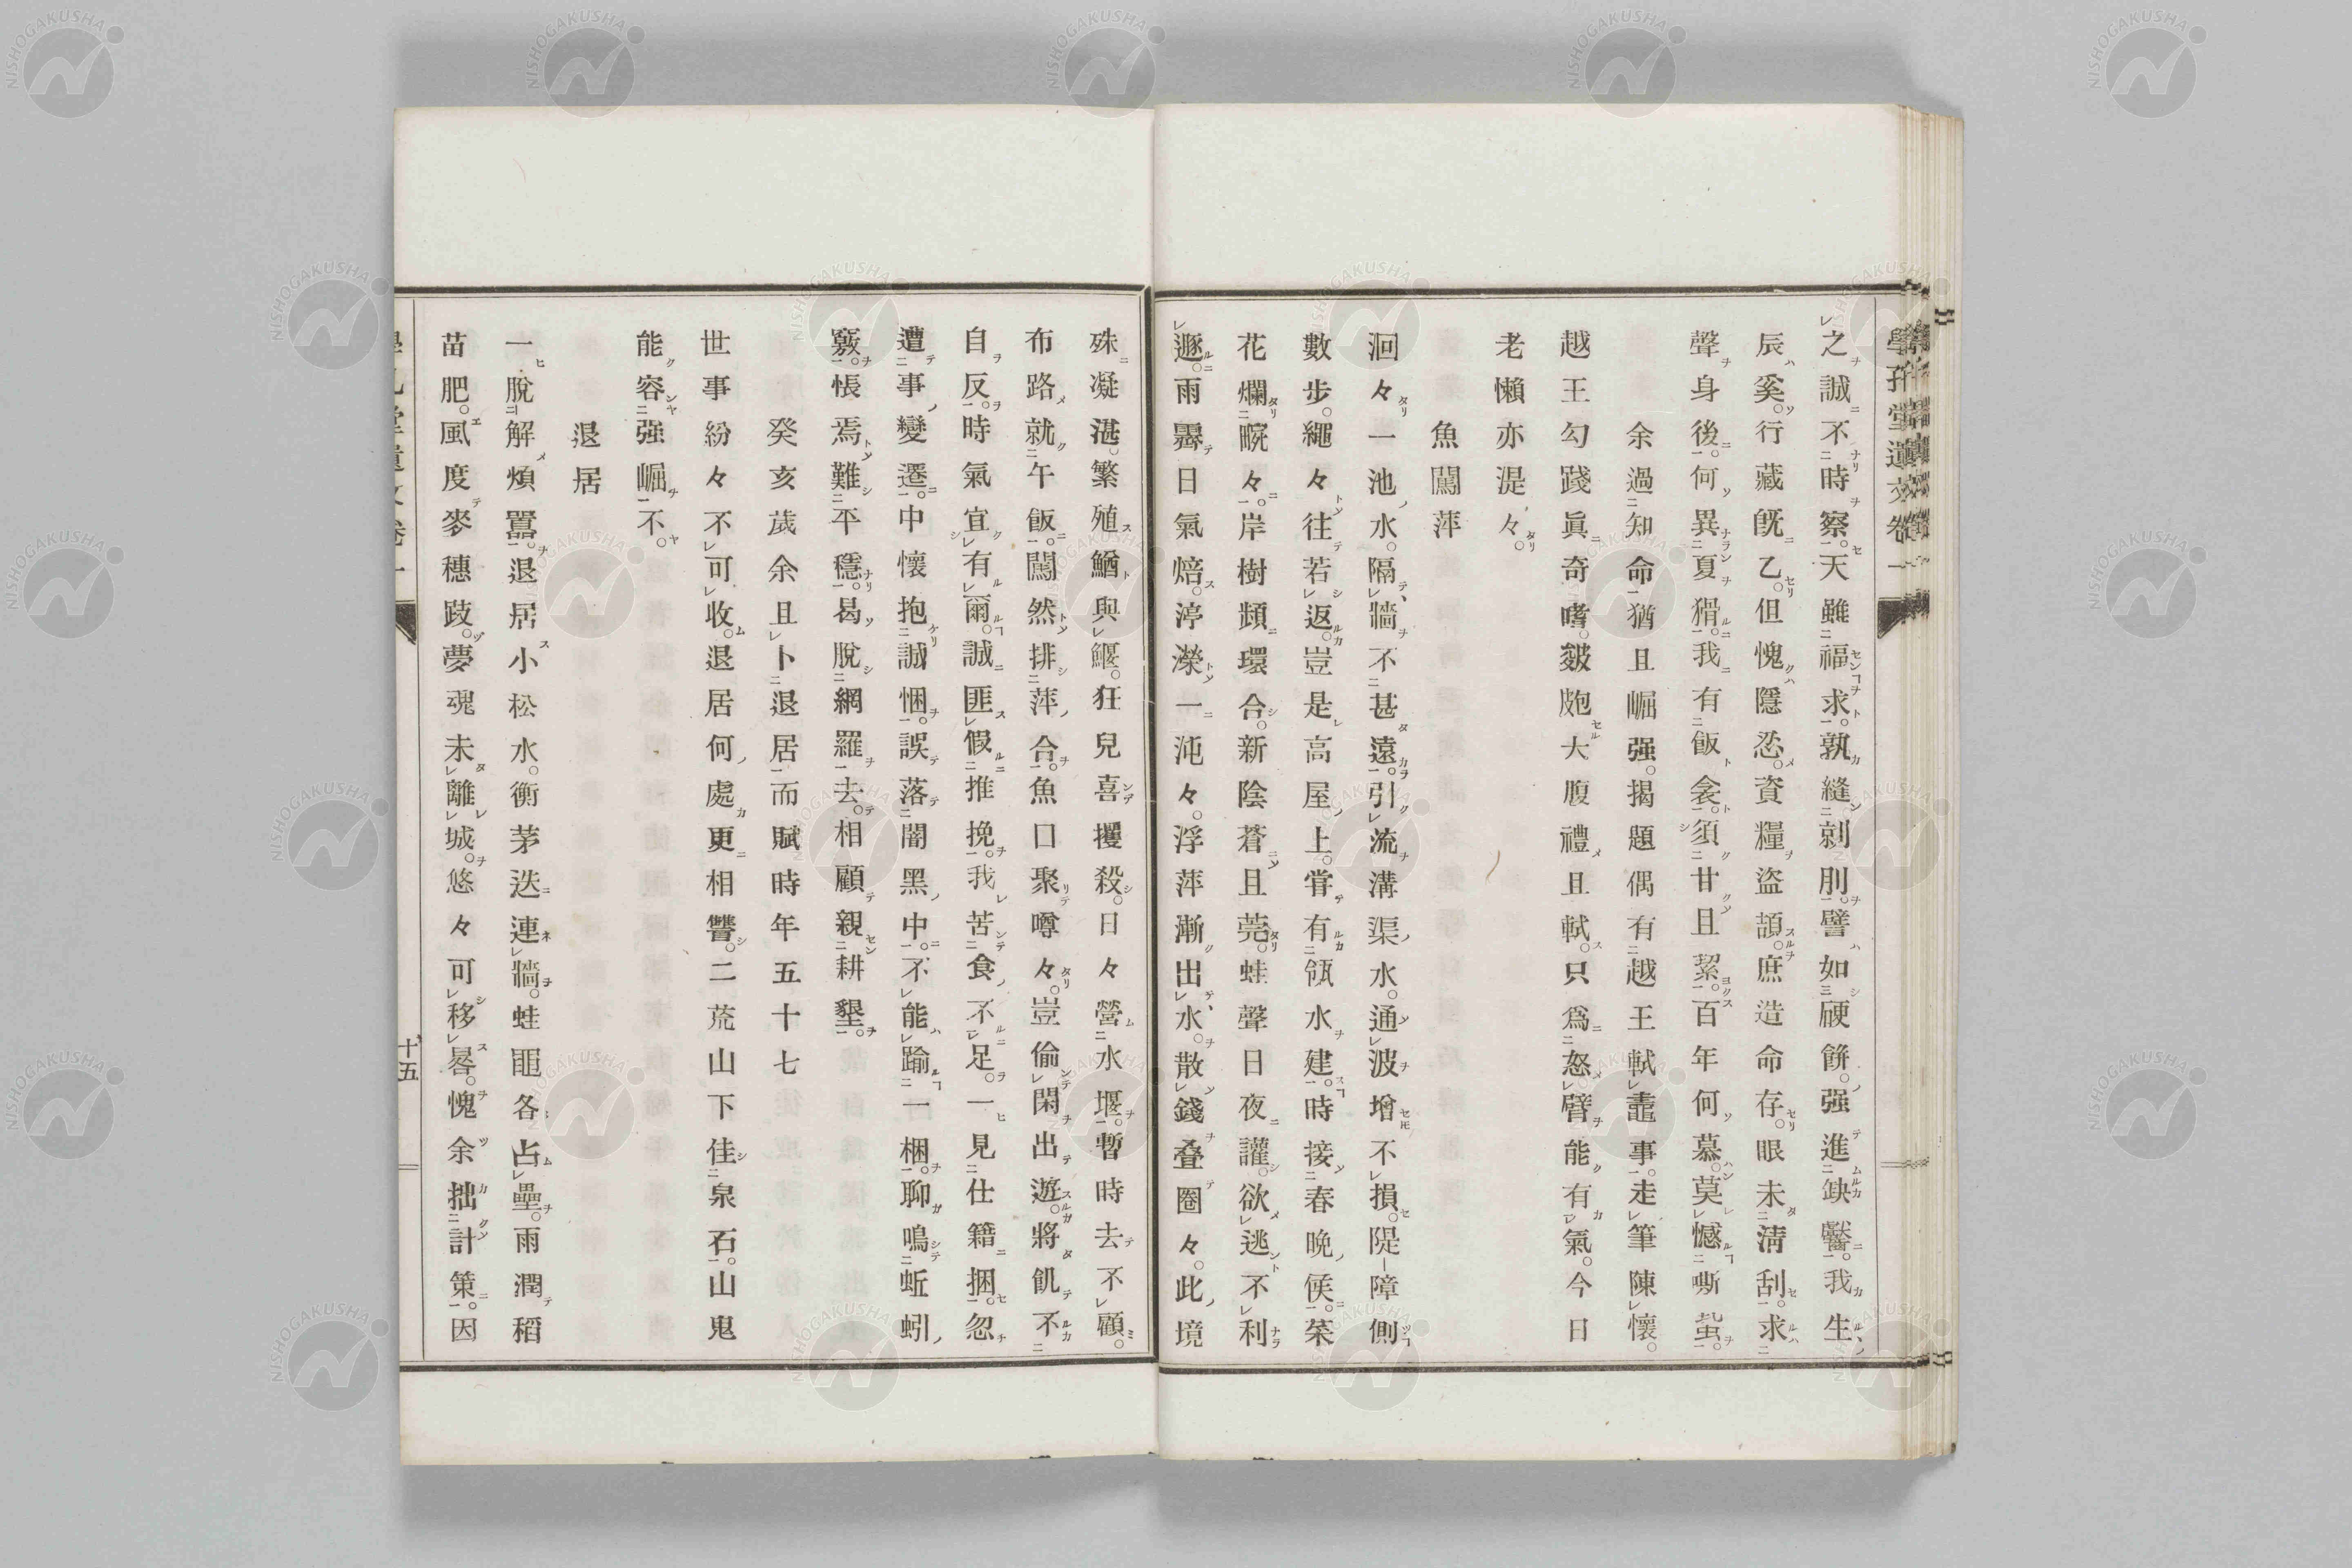 學孔堂遺文卷一
之誠不時察。天雖福求。孰縫剠刖。譬如硬餅。强進缺齾。我生
辰奚。行藏既乙。但愧隱忍。資糧盜頡。庶造命存。眼未淸刮。求
聲身後。何異夏猾。我有飯衾。須甘且絜。百年何慕。莫憾嘶蚻。
余過知命猶且崛强。揭題偶有越王軾鼃事。走筆陳懷。
越王勾踐眞奇嗜。皺皰大腹禮且軾。只爲怒臂能有氣。今日
老懶亦湜々。
魚闖萍
洄々一池水。隔牆不甚遠。引流溝渠水。通波增不損。隄障側
數步。繩々往若返。豈是高屋上。嘗有瓴水建。時接春晚候。棻
花爛畹々。岸樹頲環合。新陰蒼且莞。蛙聲日夜讙。欲逃不利
遯。雨霽日氣焙。渟濚一沌々。浮萍漸出水。散錢叠圈々。此境
殊凝湛。繁殖鰌與鰋。狂兒喜攫殺。日々營水堰。暫時去不顧。
布路就午飯。闖然排萍合。魚口聚噂々。豈偷閑出遊。將飢不
自反。時氣宜有爾。誠匪假推挽。我苦食不足。一見仕籍捆。忽
遭事變遷。中懷抱誠悃。誤落闇黑中。不能踰一梱。聊鳴蚯蚓
竅。悵焉難平穩。曷脫網羅去。相顧親耕墾。
癸亥歲余且卜退居而賦時年五十七
世事紛々不可收。退居何處更相讐。二荒山下佳泉石。山鬼
能容强崛不。
退居
一脫解煩囂。退居小松水。衡茅迭連牆。蛙黽各占壘。雨潤稻
苗肥。風度麥穗跂。夢魂未離城。悠々可移晷。愧余拙計策。因
十五